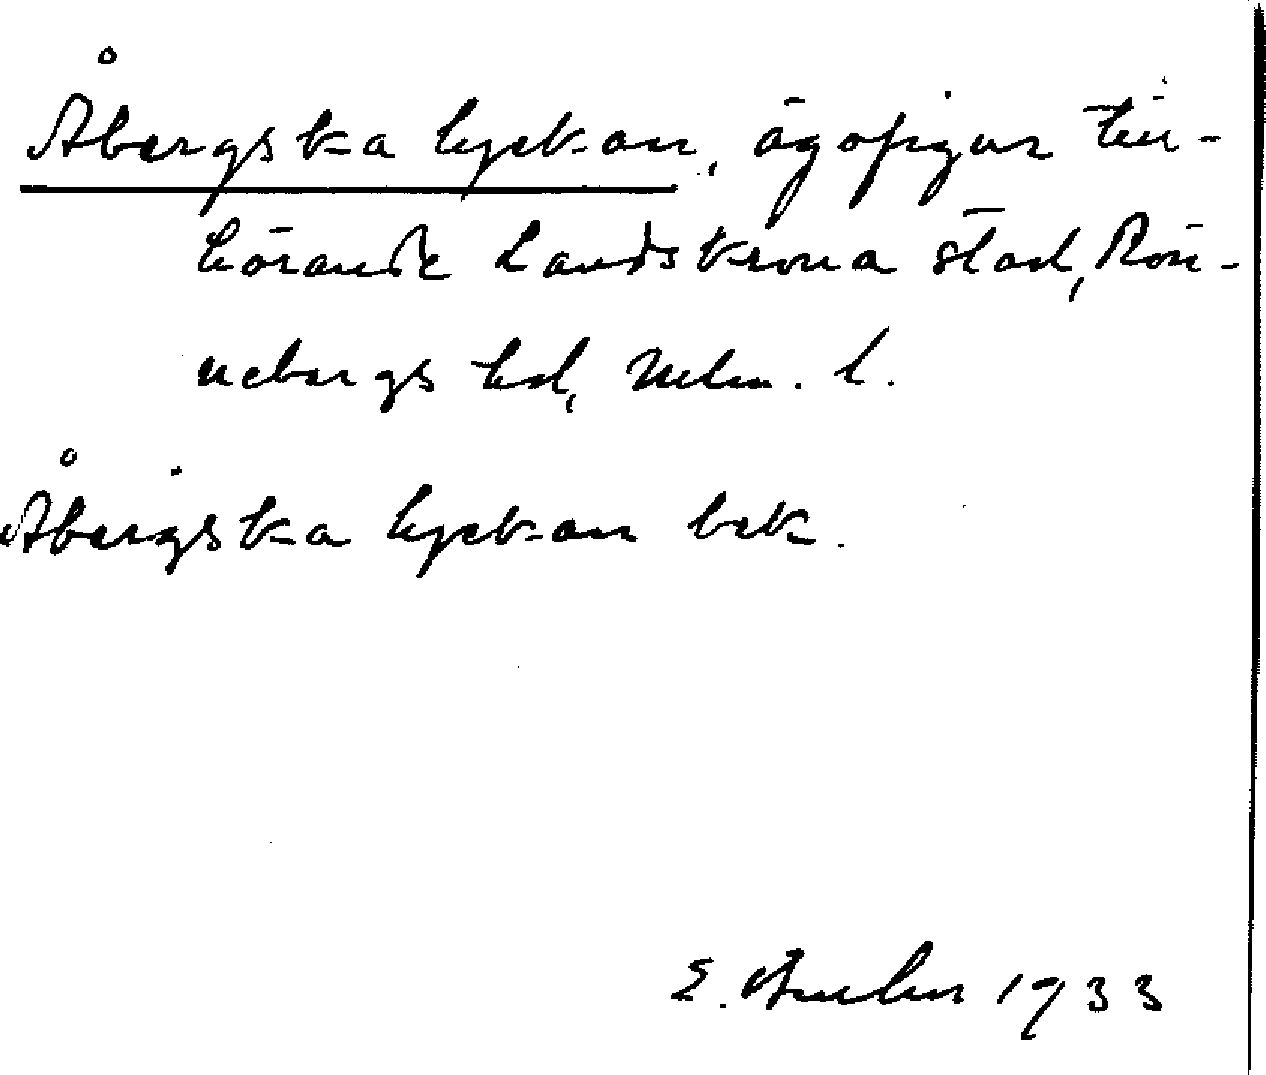 Åbergska lyckan, ägofigur till-
hörande Landskrona stad, Rön-
nebergs hd, Mlm. l.
Åbergska lyckan bek.
E. 1933